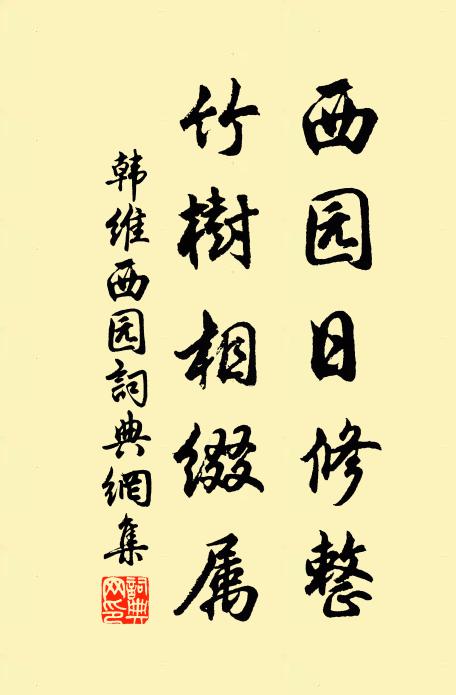 西园日修整
竹樹相缀属
韩维西园詞典網集
詞典网印